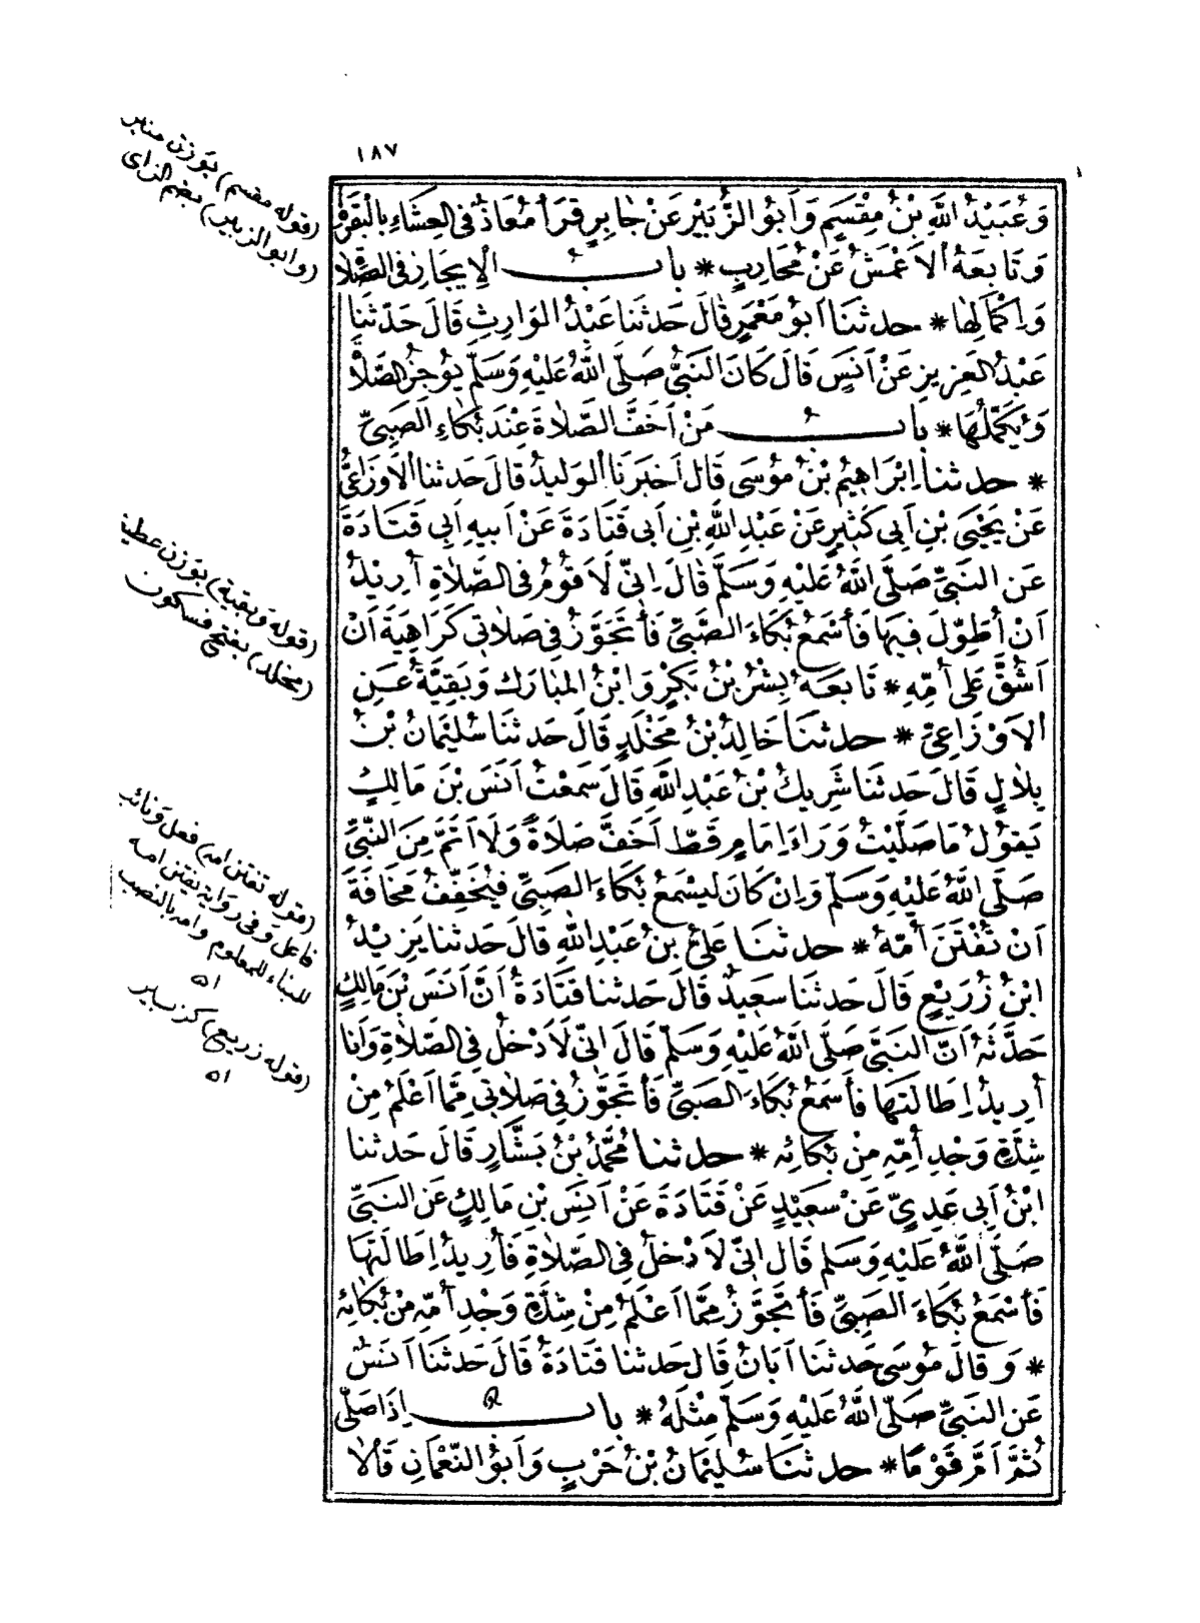 ١٨٧
وَعُبَيْدُ اللّٰهِ بْنُ مِقْسَمٍ وَأَبُو الزُّبَيْرِ عَنْ جَابِرٍ قَرَأَ مُعَاذٌ فِى العِشَاءِ بِالْبَقَرَةِ
وَتَابَعَهُ الْأَعْمَشُ عَنْ مُحَارِبٍ * بابُ الْإِيجَازِ فِى الصَّلَاةِ
وَإِكْمَالِهَا * حدثنا أَبُو مَعْمَرٍ قَالَ حَدثنَا عَبْدُ الوَارِثِ قَالَ حَدّثَنَا
عَبْدُ العَزِيزِ عَنْ أَنَسٍ قَالَ كَانَ النَّبِىُّ صَلَّى اللّٰهُ عَلَيْهِ وَسَلَّمَ يُوجِزُ الصَّلَاةَ
وَيُكَمِّلُهَا * بابُ مَنْ أَخَفَّ الصَّلَاةَ عِنْدَ بُكَاءِ الصَّبِىِّ
* حدثنا إِبْرَاهِيمُ بْنُ مُوسَى قَالَ أَخْبَرَنَا الْوَلِيدُ قَالَ حَدثنا الْأَوْزَاعِىُّ
عَنْ يَحْيَى بْنِ أَبِى كَثِيرٍ عَنْ عَبْدِ اللّٰهِ بْنِ أَبِى قَتَادَةَ عَنْ أَبِيهِ أَبِى قَتَادَةَ
عَنِ النَّبِىِّ صَلَّى اللّٰهُ عَلَيْهِ وَسَلَّمَ قَالَ إِنِّى لَأَقُومُ فِى الصَّلَاةِ أُرِيْدُ
أَنْ أُطَوِّلَ فِيهَا فَأَسْمَعُ بُكَاءَ الصَّبِىِّ فَأَتَجَوَّزُ فِى صَلَاتِى كَرَاهِيَةَ أَنْ
أَشُقَّ عَلَى أُمِّهِ * تَابَعَهُ بِشْرُ بْنُ بَكْرٍ وَابْنُ المُبَارَكِ وَبَقِيَّةُ عَنِ
الْأَوْزَاعِىِّ * حدثنَا خَالِدُ بْنُ مَخْلَدٍ قَالَ حَدثنَا سُلَيْمَانُ بْنُ
بِلَالٍ قَالَ حَدثنَا شَرِيكُ بْنُ عَبْدِ اللّٰهِ قَالَ سَمِعْتُ أَنَسَ بْنَ مَالِكٍ
يَقُولُ مَا صَلَّيْتُ وَرَاءَ إِمَامٍ قَطُّ أَخَفَّ صَلَاةً وَلَا أَتَمَّ مِنَ النَّبِىِّ
صَلَّى اللّٰهُ عَلَيْهِ وَسَلَّمَ وَإِنْ كَانَ لَيَسْمَعُ بُكَاءَ الصَّبِىِّ فَيُخَفِّفُ مَخَافَةَ
أَنْ تُفْتَنَ أُمُّهُ * حدثنَا عَلِىُّ بْنُ عَبْدِ اللّٰهِ قَالَ حَدثنا يَزِيْدُ
ابْنُ زُرَيْعٍ قَالَ حَدثنَا سَعِيدٌ قَالَ حَدثنا قَتَادَةُ أَنَّ أَنَسَ بْنَ مَالِكٍ
حَدَّثَهُ أَنَّ النَّبِىَّ صَلَّى اللّٰهُ عَلَيْهِ وَسَلَّمَ قَالَ إِنِّى لَأَدْخُلُ فِى الصَّلَاةِ وَأَنَا
أُرِيدُ إِطَالَتَهَا فَأَسْمَعُ بُكَاءَ الصَّبِىِّ فَأَتَجَوَّزُ فِى صَلَاتِى مِمَّا أَعْلَمُ مِنْ
شِدَّةِ وَجْدِ أُمِّهِ مِنْ بُكَائِهِ * حدثنا مُحَمَّدُ بْنُ بَشَّارٍ قَالَ حَدثنا
ابْنُ أَبِى عَدِىٍّ عَنْ سَعِيْدٍ عَنْ قَتَادَةَ عَنْ أَنَسِ بْنِ مَالِكٍ عَنِ النَّبِىِّ
صَلَّى اللّٰهُ عَلَيْهِ وَسَلَّمَ قَالَ إِنِّى لَأَدْخُلُ فِى الصَّلَاةِ فَأُرِيدُ إِطَالَتَهَا
فَأَسْمَعُ بُكَاءَ الصَّبِىِّ فَأَتَجَوَّزُ مِمَّا أَعْلَمُ مِنْ شِدَّةِ وَجْدِ أُمِّهِ مِنْ بُكَائِهِ
* وَقَالَ مُوسَى حَدثنَا أَبَانُ قَالَ حَدثنا قَتَادَةُ قَالَ حَدثنَا أَنَسٌ
عَنِ النَّبِىِّ صَلَّى اللّٰهُ عَلَيْهِ وَسَلَّمَ مِثْلَهُ * باب إِذَا صَلَّى
ثُمَّ أَمَّ قَوْمًا * حدثنَا سُلَيْمَانُ بْنُ حَرْبٍ وَأَبُو النُّعْمَانِ قَالَا
(قوله مقسم) بوزن منبر
(وابو الزبير) بضم الزاى
(قوله وبقية) بوزن عطية
(مخلد) بفتح فسكون
(قوله تفتن امه) فعل ونائب
فاعل وفى رواية يفتن امه
للبناء للمعلوم وامه بالنصب
اه
(قوله زريع) كزبير
اه